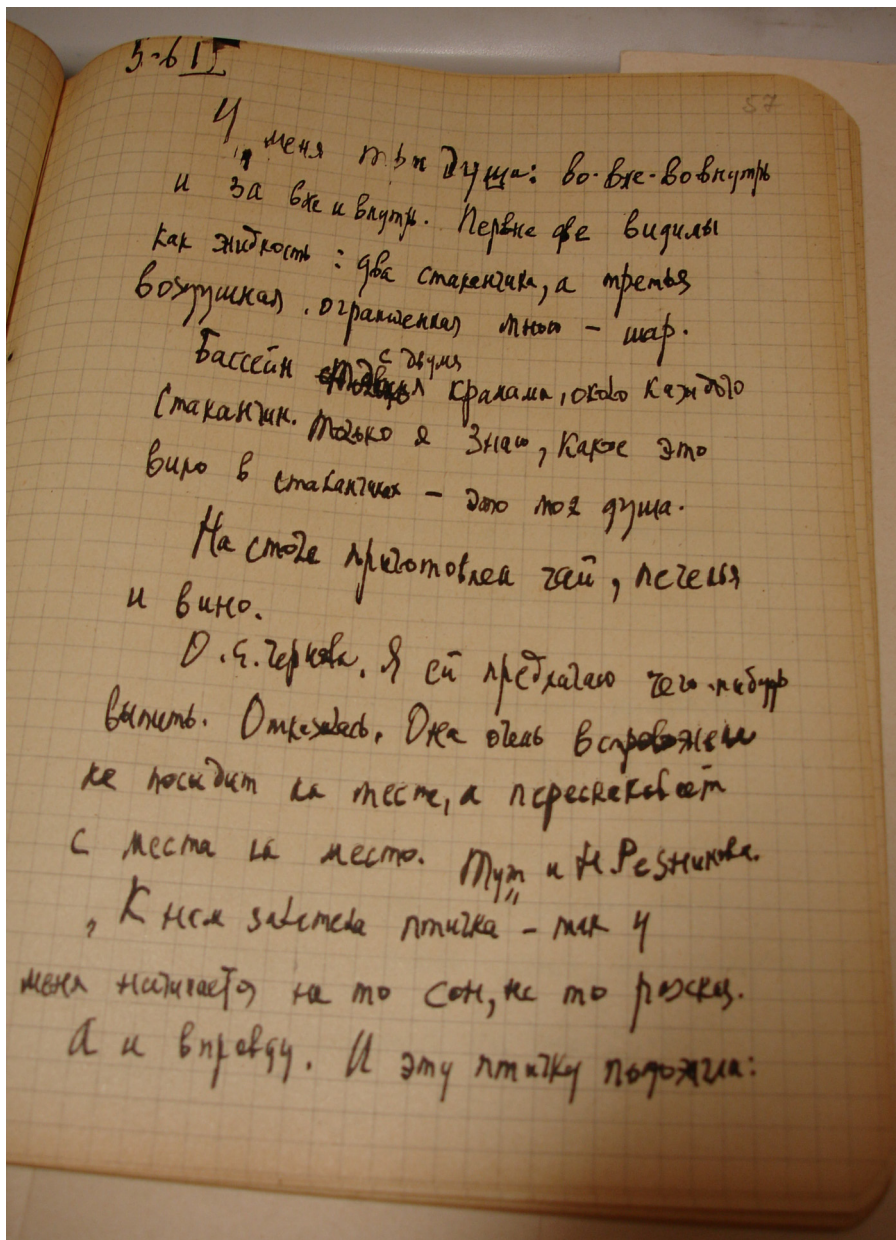 5-6 II
57
У меня три душа: во-вне-вовнутрь
и за вне и внутрь. Первые две видимы
как жидкость: два стаканчика, а третья
воздушная, ограниченная мною – шар.
Бассейн с двумя кранами, около каждого
стаканчик. Только я знаю, какое это
вино в стаканчиках – это моя душа.
На столе приготовлен чай, печенья
и вино.
О.Е. Чернова. Я ей предлагаю чего-нибудь
выпить. Отказалась. Она очень встревожена
не посидит на месте, а перескакивает
с места на место. Тут и Н. Резникова.
„К нем залетела птичка" – так у
меня начинается не то сон, не то рассказ.
А и вправду. И эту птичку